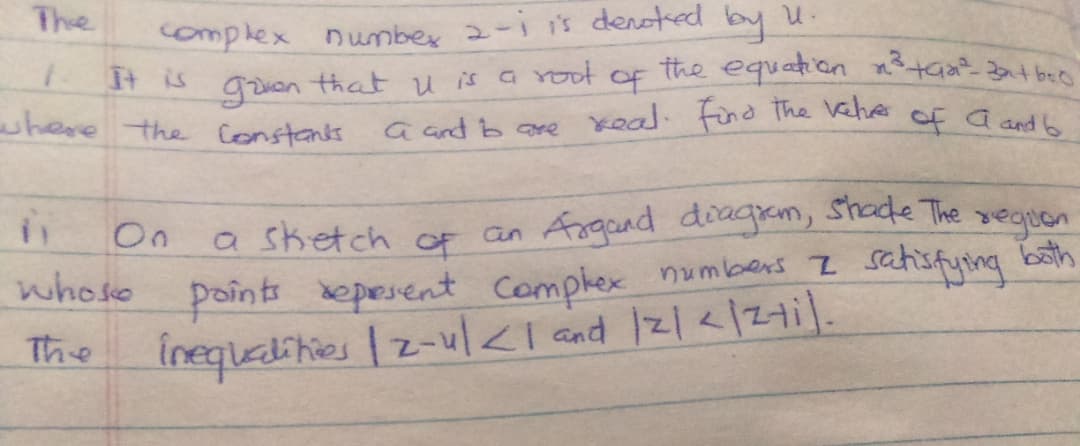 The complex number 2-i is denoted by u.
1. It is given that u is a root of the equation x³+ax²-3x+b=0
where the constants a and b are real. find the values of a and b
ii On a sketch of an Argand diagram, shade The region
whose points represent complex numbers z satisfying both
The inequalities |z-u|<1 and |z|<|z+i|.